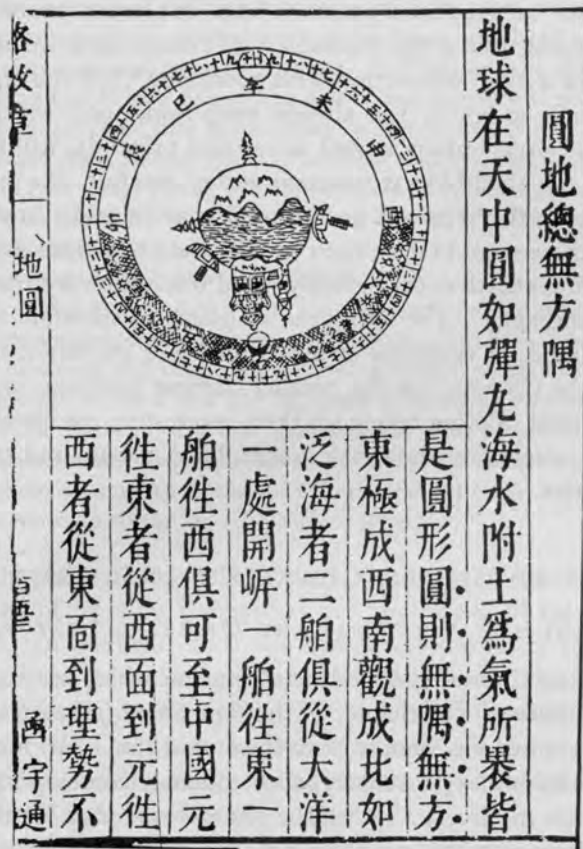 圓地總無方隅
地球在天中圓如彈丸海水附土爲氣所裹皆
是圓形圓則無隅無方
東極成西南觀成北如
泛海者二舶俱從大洋
一處開岍一舶徃東一
舶徃西俱可至中國元
徃東者從西面到元徃
西者從東面到理勢不
午
未
申
酉
卯
辰
巳
格致草
地圓
函宇通